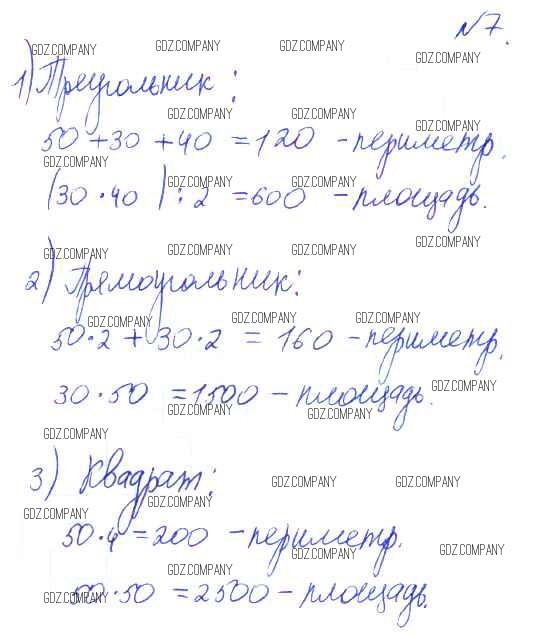 №7.
GDZ.COMPANY GDZ.COMPANY GDZ.COMPANY GDZ.COMPANY
1) Треугольник:
GDZ.COMPANY GDZ.COMPANY GDZ.COMPANY
50 + 30 + 40 = 120 - периметр.
GDZ.COMPANY GDZ.COMPANY GDZ.COMPANY
(30 · 40) : 2 = 600 - площадь.
GDZ.COMPANY GDZ.COMPANY GDZ.COMPANY GDZ.COMPANY
2) Прямоугольник:
GDZ.COMPANY GDZ.COMPANY GDZ.COMPANY
50·2 + 30·2 = 160 - периметр.
GDZ.COMPANY
30 · 50 = 1500 - площадь.
GDZ.COMPANY GDZ.COMPANY
GDZ.COMPANY
3) Квадрат:
GDZ.COMPANY GDZ.COMPANY
GDZ.COMPANY GDZ.COMPANY
50·4 = 200 - периметр.
GDZ.COMPANY GDZ.COMPANY
GDZ.COMPANY
50·50 = 2500 - площадь.
GDZ.COMPANY GDZ.COMPANY